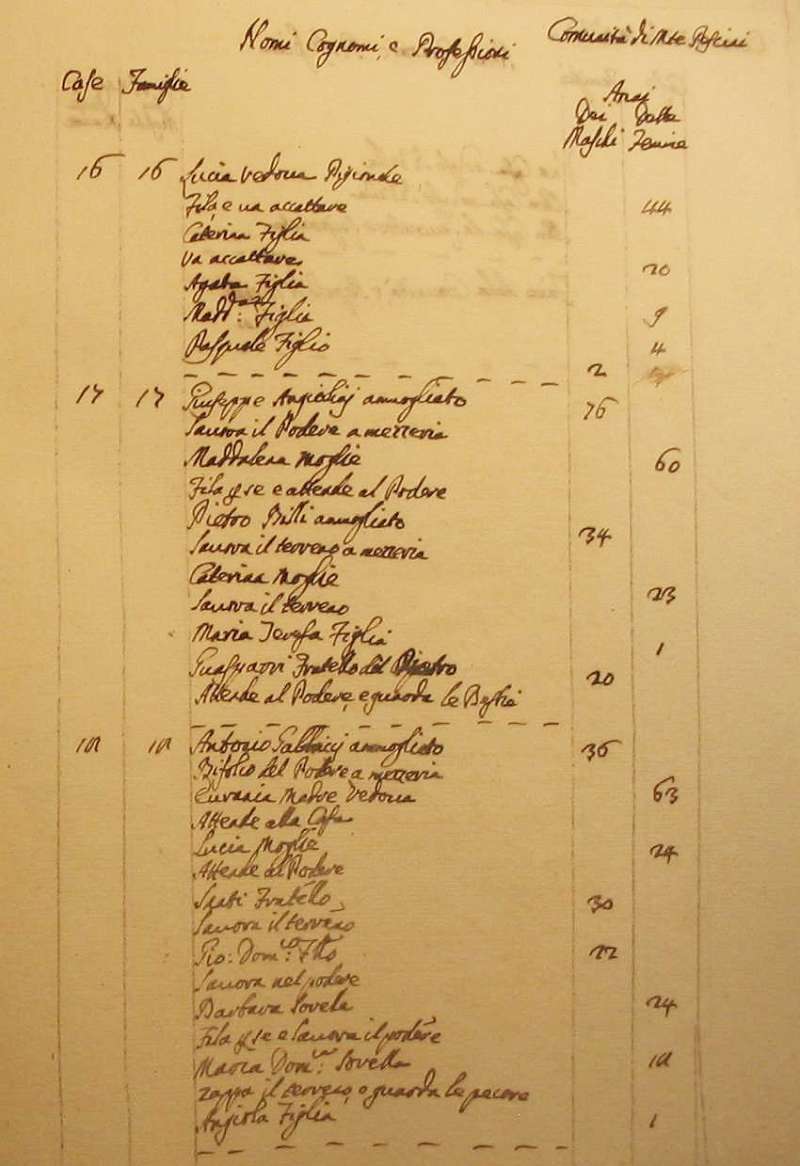 Nomi Cognomi, e Professioni Comunità di Mte
Case Famiglie
Anni
Dei Delle
Maschi Femine
16 16 Lucia vedova Pigionale
Fila, e va accattare 44
Caterina Figlia
va accattare 20
Agata Figlia
Madd:na Figlia 9
Pasquale Figlio 4
2
17 17 Giuseppe ammogliato 76
Lavora il Podere a mezzeria
Maddalena Moglie 60
Fila p se e attende al Podere
Pietro Billi ammogliato 34
Lavora il terreno a mezzeria
Caterina Moglie
Lavora il terreno 23
Maria Teresa Figlia 1
Guasparri Fratello del Pietro 20
Attende al Podere, e guarda le Bestie
18 18 Antonio ammogliato 36
Bifolco del Podere a mezzeria
Eurania Madre Vedova 63
Attende alla Casa
Lucia Moglie 24
Attende al Podere
Santi Fratello 30
Lavora il terreno
Gio: Dom:co Fllo 22
Lavora nel podere
Barbara Sorella 24
Fila p se e Lavora il podere
Maria Dom:ca Sorella 18
zappa il terreno, o guarda le pecore
Angiola Figlia 1